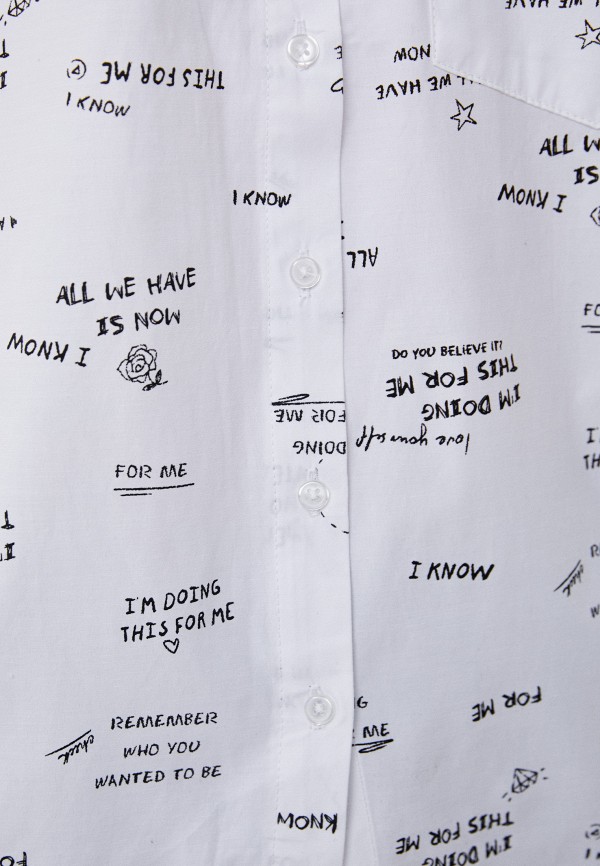 WE HAVE
THIS FOR ME
I KNOW
NOW
WE HAVE
ALL
I KNOW
I KNOW
ALL
ALL WE HAVE
IS NOW
I KNOW
DO YOU BELIEVE IT?
THIS FOR ME
I'M DOING
love yourself
FOR ME
DOING
FOR ME
I KNOW
I'M DOING
THIS FOR ME
check
FOR ME
REMEMBER
WHO YOU
WANTED TO BE
check
ME
KNOW
THIS FOR ME
I'M DOING